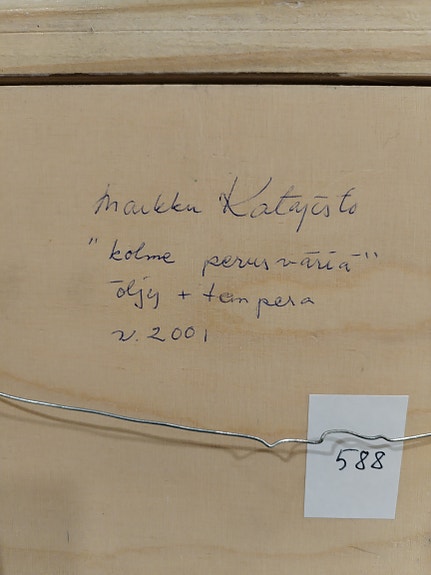 Markku Katajisto
"kolme perusväriä"
öljy + tempera
v. 2001
588